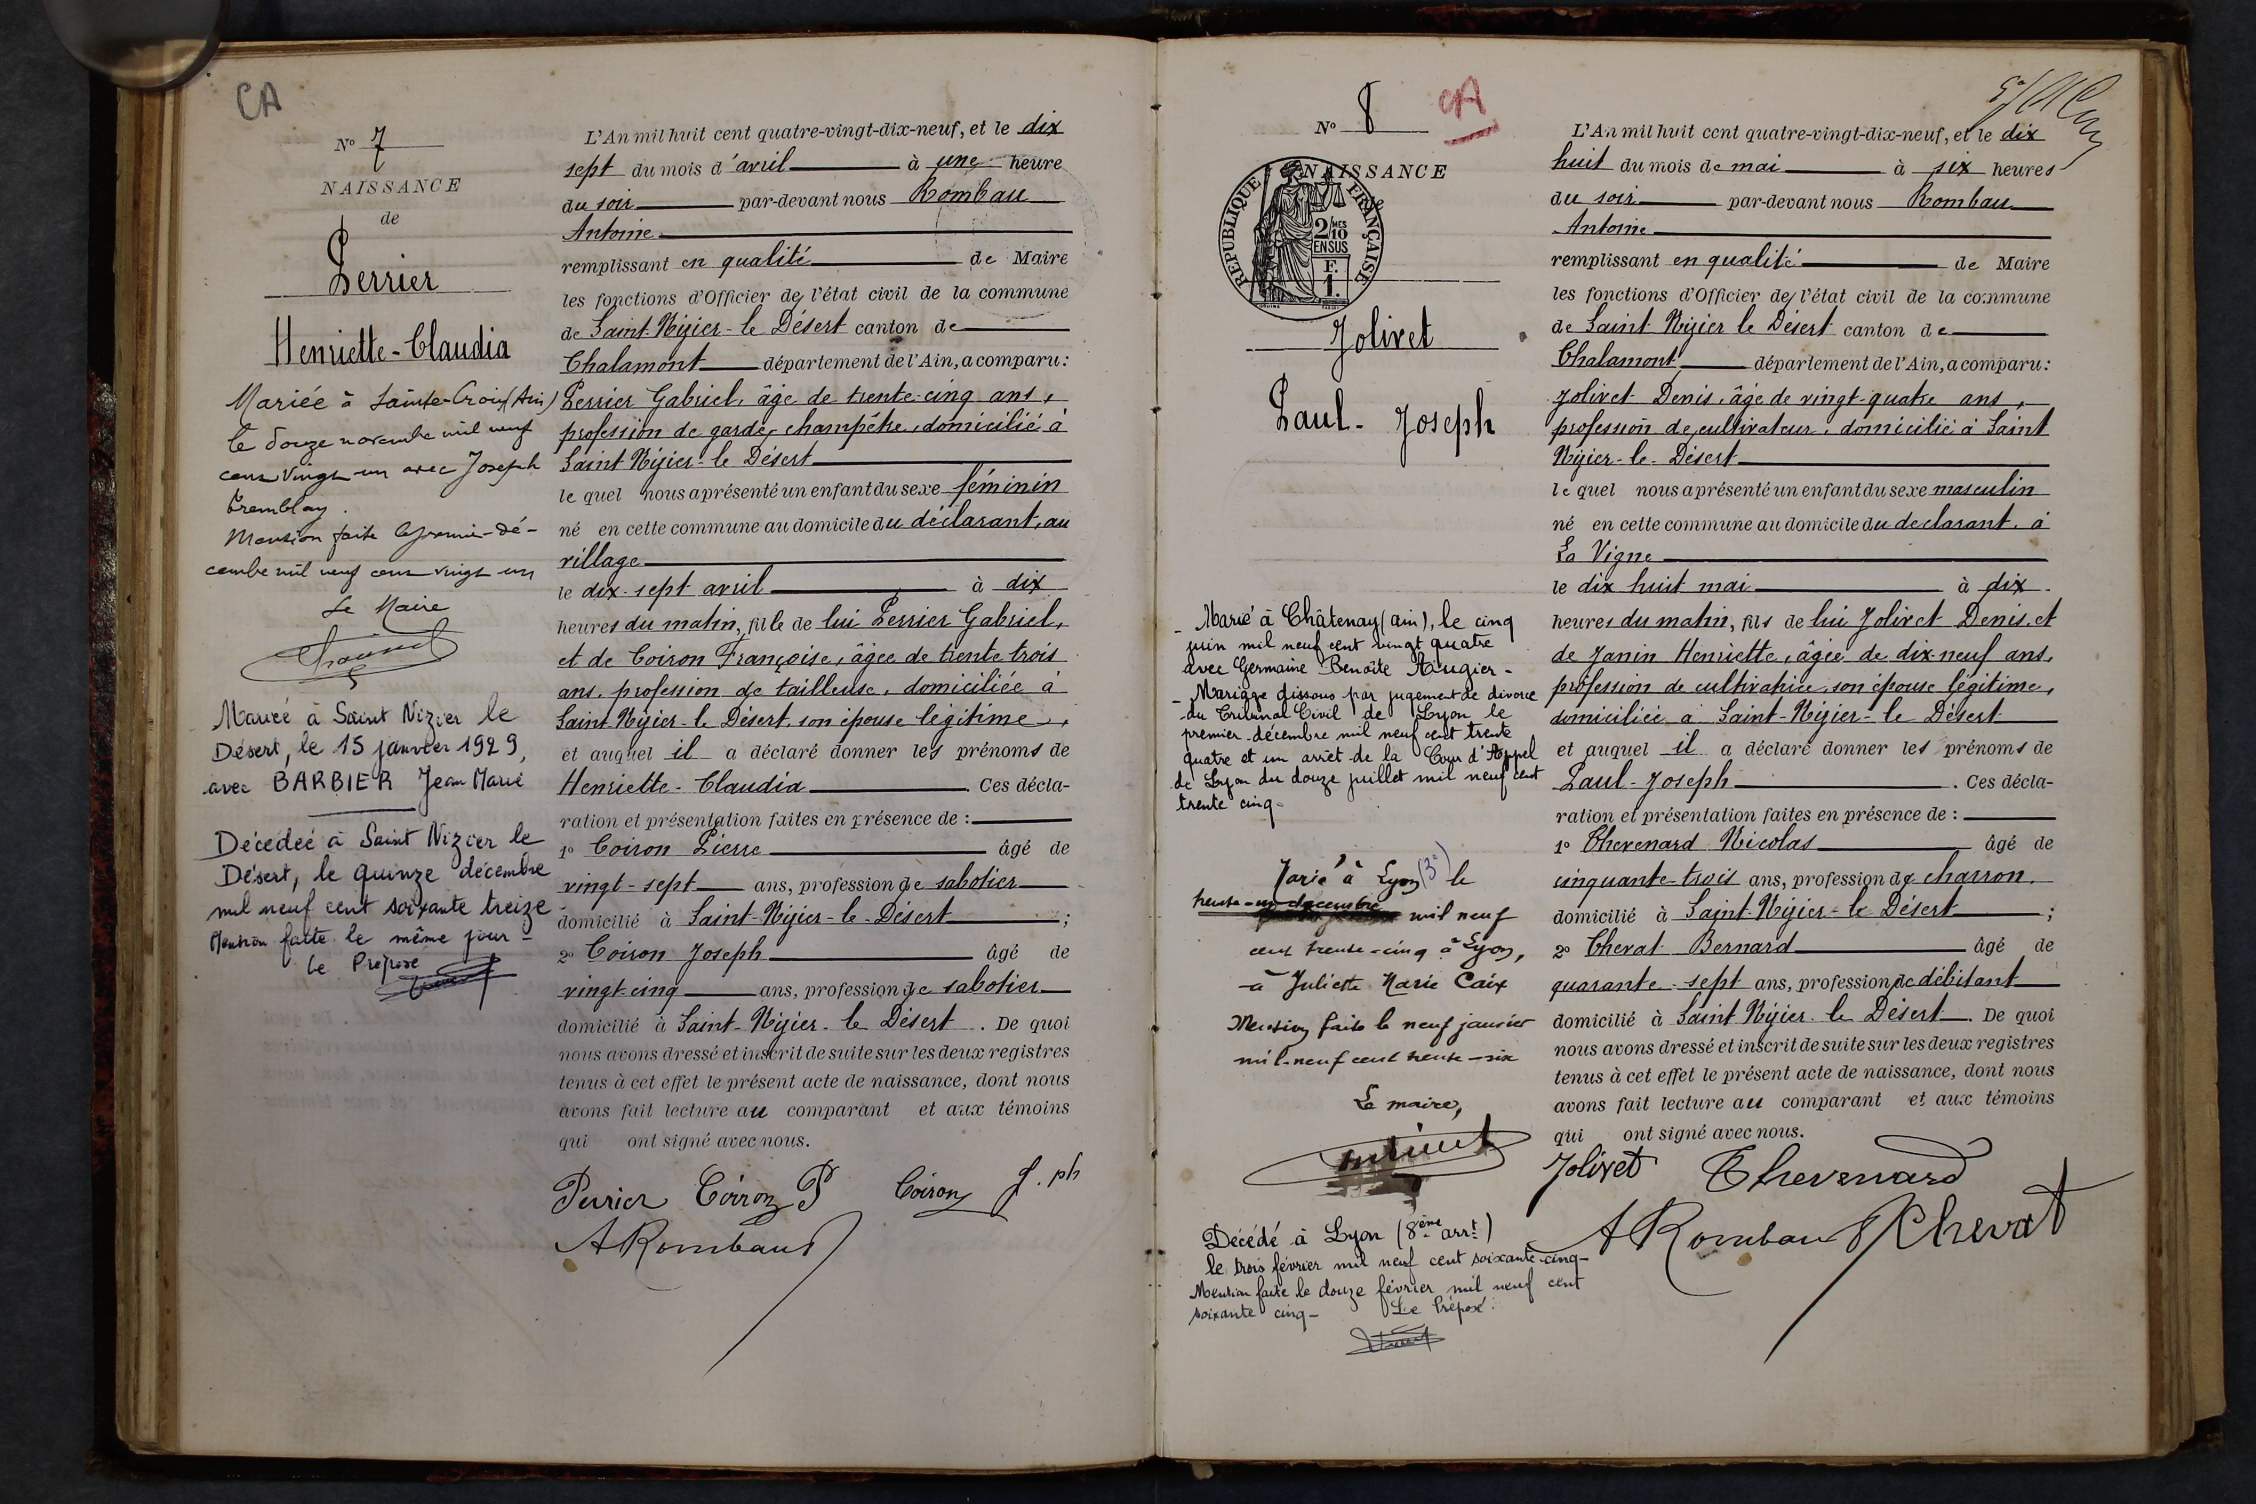 CA
Nº 7
NAISSANCE
de
Perrier
Henriette-Claudia
Mariée à Sainte-Croix (Ain)
le douze novembre mil neuf
cent vingt un avec Joseph
Tremblay.
Mention faite le premier dé-
cembre mil neuf cent vingt un
Le Maire
Mariée à Saint Nizier le
Désert, le 15 janvier 1929,
avec BARBIER Jean Marie
Décédée à Saint Nizier le
Désert, le quinze décembre
mil neuf cent soixante treize
Mention faite le même jour -
Le Préposé
L'An mil huit cent quatre-vingt-dix-neuf, et le dix
sept du mois d'avril à une heure
du soir par-devant nous Rombau
Antoine
remplissant en qualité de Maire
les fonctions d'Officier de l'état civil de la commune
de Saint-Nizier-le Désert canton de
Chalamont département de l'Ain, a comparu:
Perrier Gabriel, âgé de trente-cinq ans,
profession de garde champêtre, domicilié à
Saint Nizier-le Désert
le quel nous a présenté un enfant du sexe féminin
né en cette commune au domicile du déclarant, au
village
le dix-sept avril à dix
heures du matin, fille de lui Perrier Gabriel,
et de Coiron Françoise, âgée de trente trois
ans, profession de tailleuse, domiciliée à
Saint-Nizier-le Désert, son épouse légitime,
et auquel il a déclaré donner les prénoms de
Henriette-Claudia. Ces décla-
ration et présentation faites en présence de :
1º Coiron Pierre âgé de
vingt-sept ans, profession de sabotier
domicilié à Saint-Nizier-le-Désert ;
2º Coiron Joseph âgé de
vingt-cinq ans, profession de sabotier
domicilié à Saint-Nizier-le Désert. De quoi
nous avons dressé et inscrit de suite sur les deux registres
tenus à cet effet le présent acte de naissance, dont nous
avons fait lecture au comparant et aux témoins
qui ont signé avec nous.
Perrier Coiron P Coiron J. ph
A Rombaud
Nº 8 CA
NAISSANCE
de
REPUBLIQUE FRANÇAISE
2/10 MES
EN SUS
F.
1.
Jolivet
Paul-Joseph
Marié à Châtenay (ain), le cinq
juin mil neuf cent vingt quatre
avec Germaine Benoîte Augier -
- Mariage dissous par jugement de divorce
du Tribunal Civil de Lyon le
premier décembre mil neuf cent trente
quatre et un arrêt de la Cour d'Appel
de Lyon du douze juillet mil neuf cent
trente cinq -
Marié à Lyon (3e) le
trente-un décembre mil neuf
cent trente-cinq à Lyon,
à Juliette Marie Caix
Mention faite le neuf janvier
mil-neuf cent trente-six
Le maire,
Décédé à Lyon (8ème arrt)
le trois février mil neuf cent soixante-cinq -
Mention faite le douze février mil neuf cent
soixante cinq - Le Préposé:
L'An mil huit cent quatre-vingt-dix-neuf, et le dix
huit du mois de mai à six heures
du soir par-devant nous Rombau
Antoine
remplissant en qualité de Maire
les fonctions d'Officier de l'état civil de la commune
de Saint Nizier le Désert canton de
Chalamont département de l'Ain, a comparu:
Jolivet Denis, âgé de vingt-quatre ans,
profession de cultivateur, domicilié à Saint
Nizier-le-Désert
le quel nous a présenté un enfant du sexe masculin
né en cette commune au domicile du declarant, à
La Vigne
le dix huit mai à dix
heures du matin, fils de lui Jolivet Denis, et
de Janin Henriette, âgée de dix-neuf ans,
profession de cultivatrice, son épouse légitime,
domiciliée à Saint-Nizier-le Désert
et auquel il a déclaré donner les prénoms de
Paul-Joseph. Ces décla-
ration et présentation faites en présence de :
1º Thevenard Nicolas âgé de
cinquante-trois ans, profession de charron,
domicilié à Saint-Nizier-le Désert ;
2º Chevat Bernard âgé de
quarante-sept ans, profession de débitant
domicilié à Saint Nizier-le Désert. De quoi
nous avons dressé et inscrit de suite sur les deux registres
tenus à cet effet le présent acte de naissance, dont nous
avons fait lecture au comparant et aux témoins
qui ont signé avec nous.
Jolivet Thevenard
A Rombaud Chevat